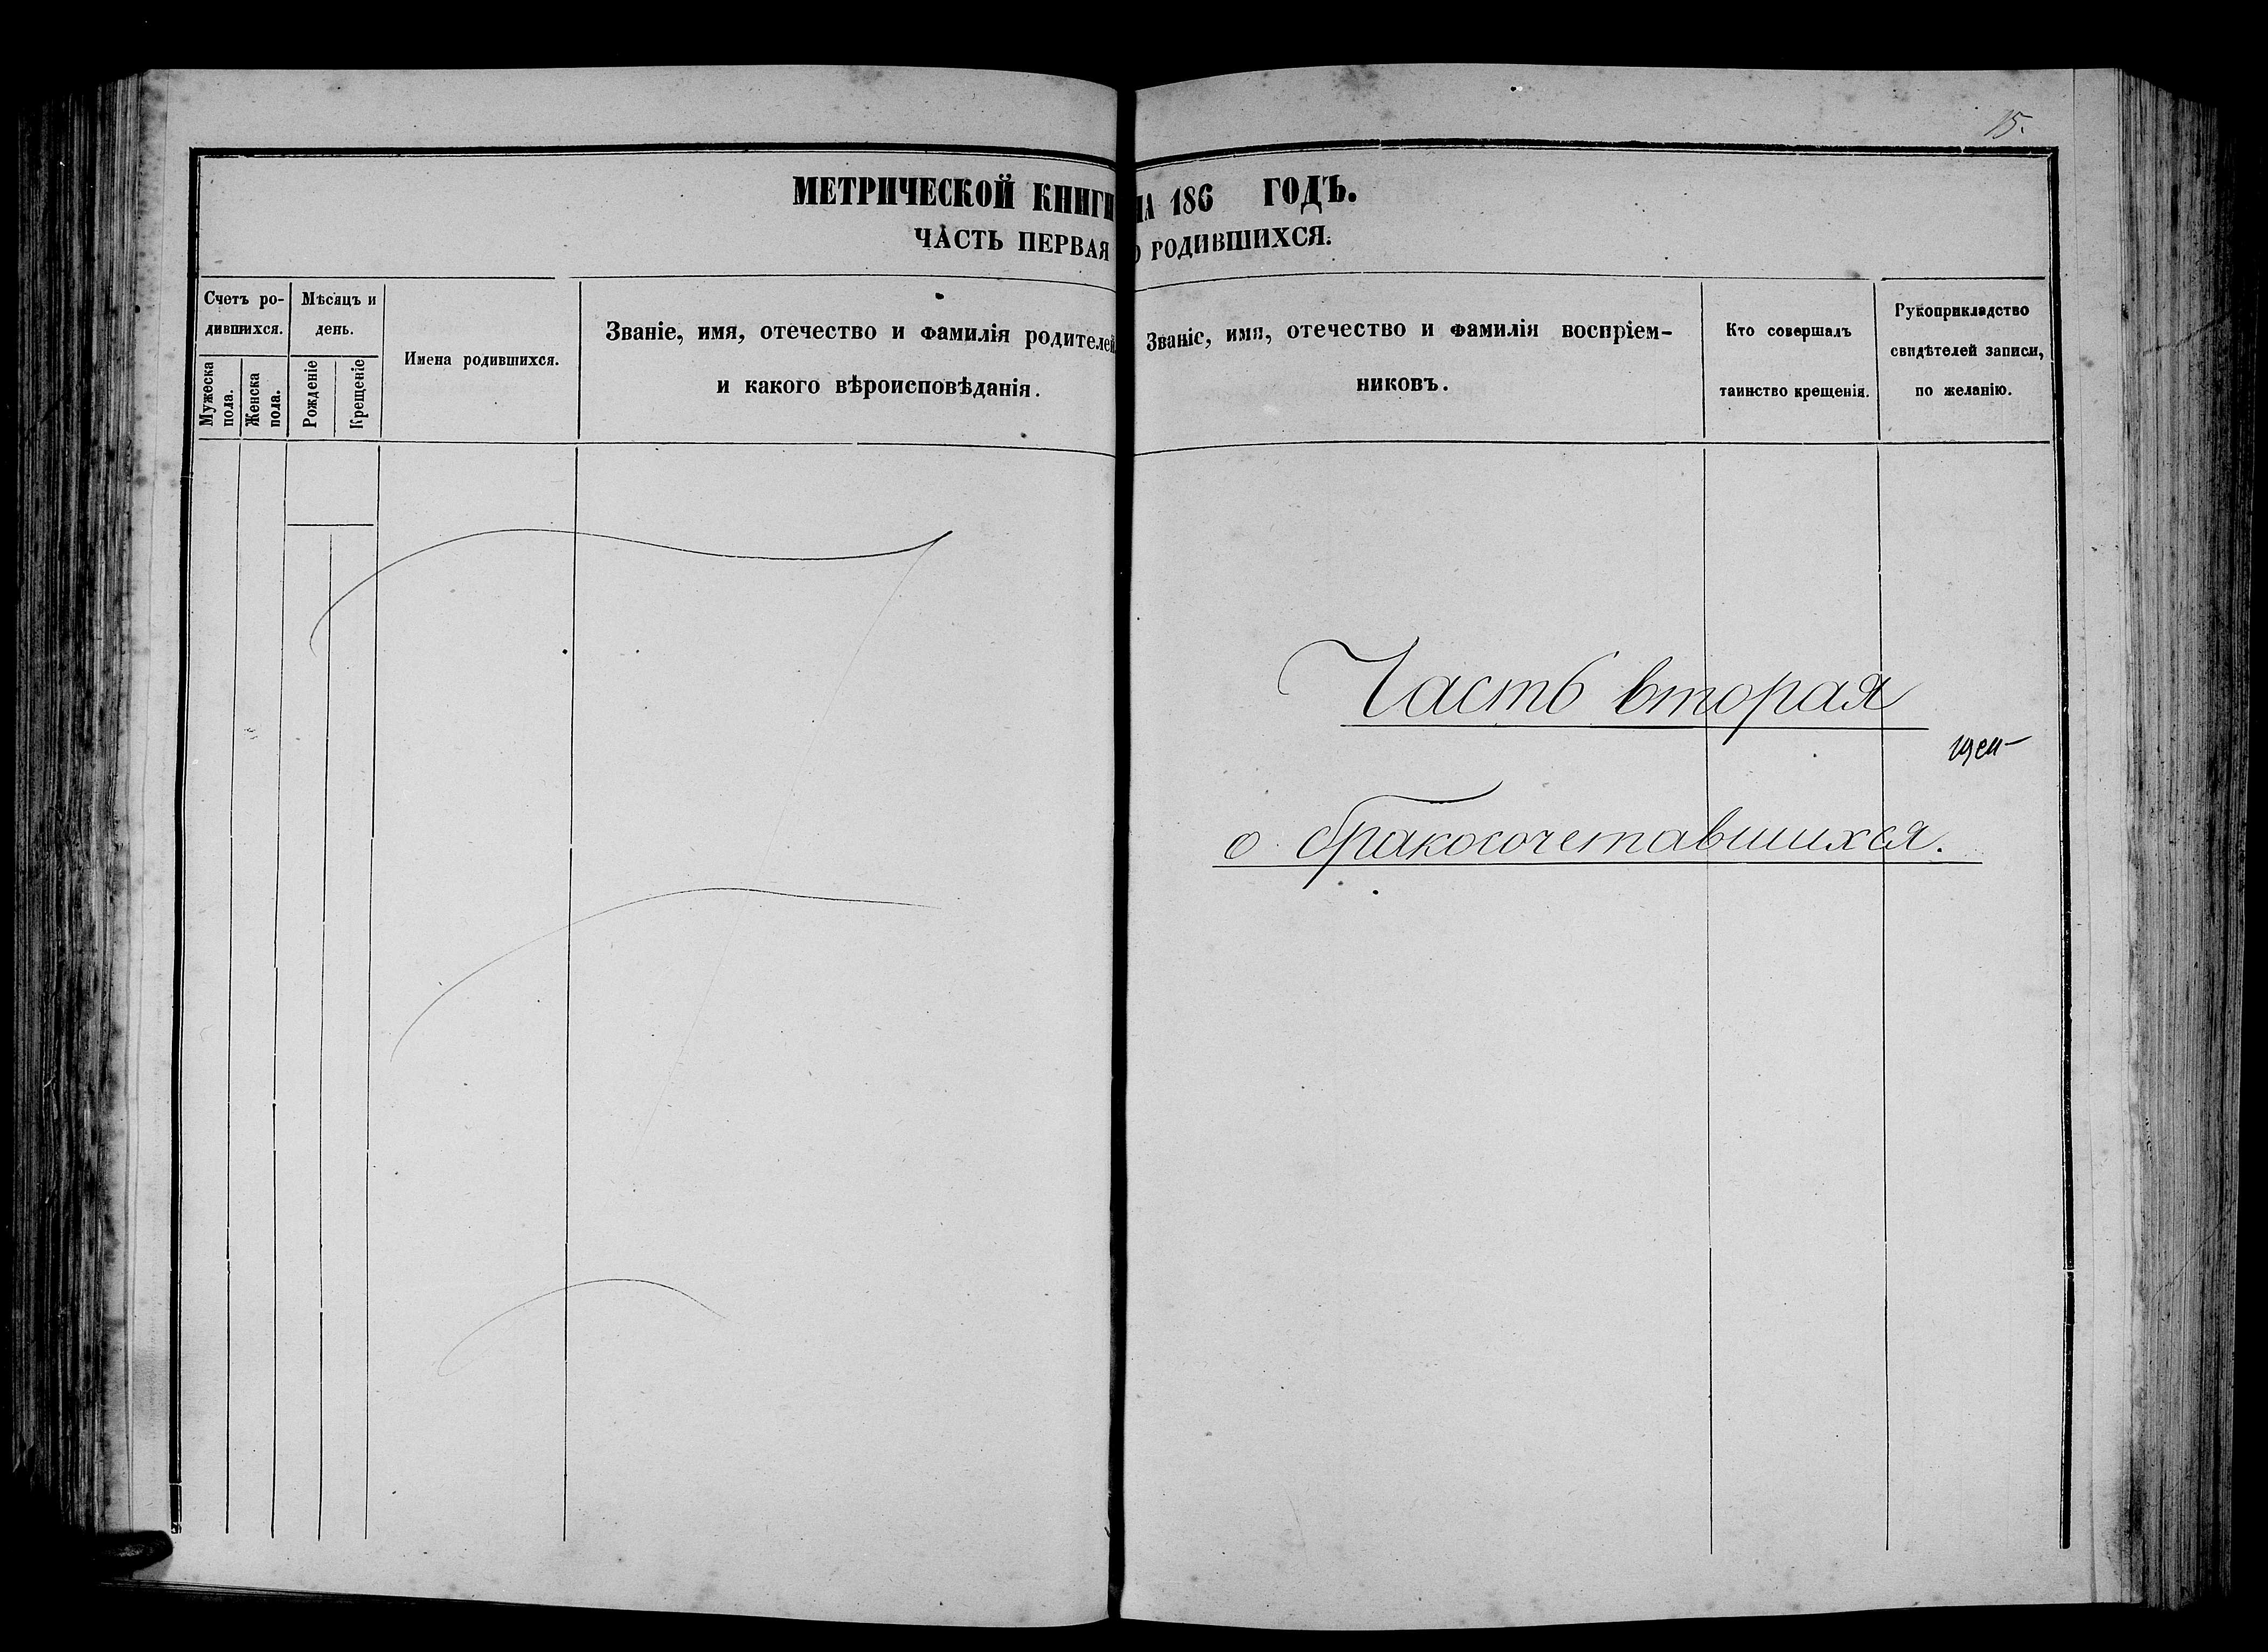 15.
МЕТРИЧЕСКОЙ КНИГИ НА 186 ГОДЪ.
ЧАСТЬ ПЕРВАЯ О РОДИВШИХСЯ.
Счетъ ро-
дившихся.
Мужеска
пола.
Женска
пола.
Мѣсяцъ и
день.
Рожденіе
Крещеніе
Имена родившихся.
Званіе, имя, отечество и фамилія родителей
и какого вѣроисповѣданія.
Званіе, имя, отечество и фамилія воспріем-
никовъ.
Кто совершалъ
таинство крещенія.
Рукоприкладство
свидѣтелей записи,
по желанію.
Часть вторая
о бракосочетавшихся.